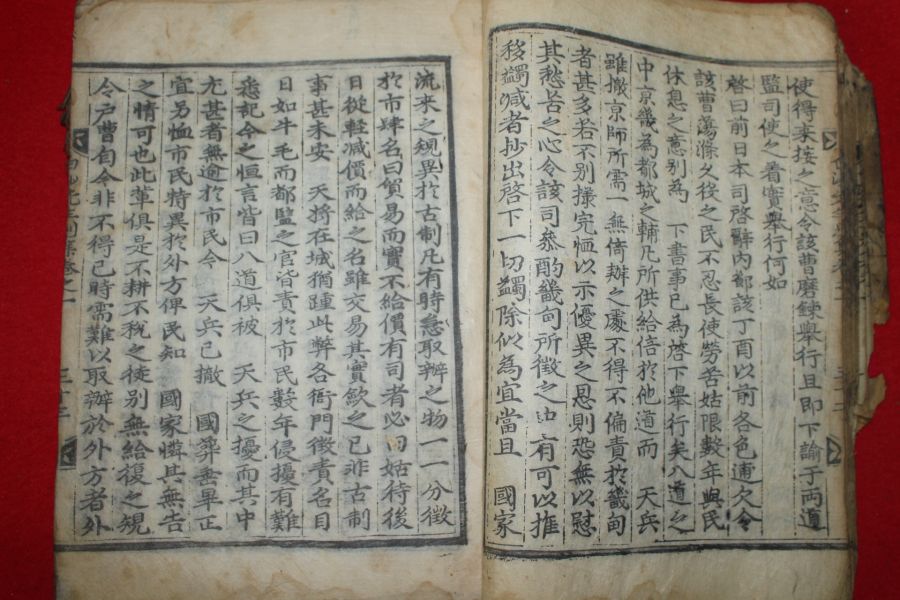 使得來接之意令該曹磨鍊擧行且即下諭于両道
監司使之着實擧行何如
啓曰前日本司啓辭內都該丁酉以前各色逋欠令
該曹蕩滌久役之民不忍長使勞苦姑限數年與民
休息之意別為 下書事已為啓下擧行矣八道之
中京畿為都城之輔凡所供給倍於他道而 天兵
雖撤京師所需一無倚辦之處不得不偏責於畿甸
者甚多若不別㨾完恤以示優異之恩則恐無以慰
其愁苦之心令該司叅酌畿甸所徵之中有可以推
移蠲减者抄出啓下一切蠲除似為宜當且 國家
流來之規異於古制凡有時急取辦之物一一分徵
於市肆名曰貿易而實不給價有司者必曰姑待後
日從輕减價而給之名雖交易其實斂之已非古制
事甚未安 天將在城猶踵此弊各衙門徵責名目
日如牛毛而都監之官皆責於市民數年侵擾有難
悉記今之恒言皆曰八道俱被 天兵之擾而其中
尤甚者無逾於市民今 天兵已撤 國葬垂畢正
宜另恤市民特異於外方俾民知 國家憐其無告
之情可也此軰俱是不耕不稅之徒別無給復之規
令戶曹自今非不得已時需難以取辦於外方者外